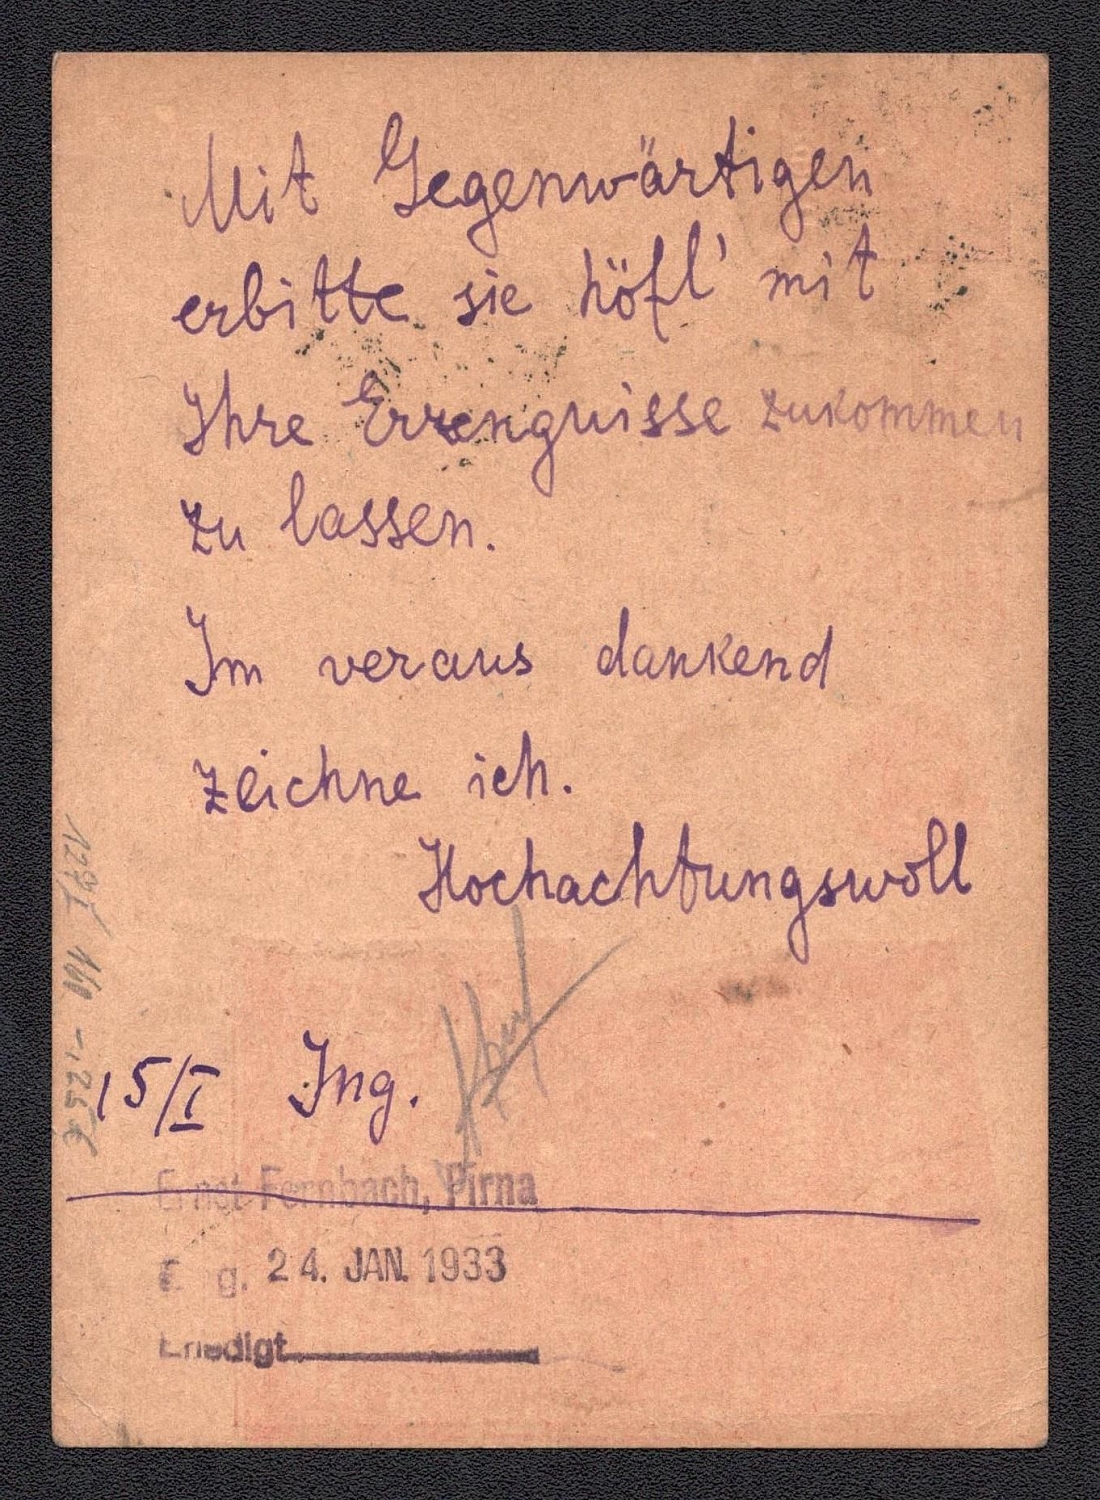 Mit Gegenwärtigen
erbitte sie höfl' mit
Ihre Erzengnisse zukommen
zu lassen.
Im veraus dankend
zeichne ich.
Hochachtungswoll
15/I Ing.
Ernst Fernbach, Pirna
24. JAN. 1933
Erledigt